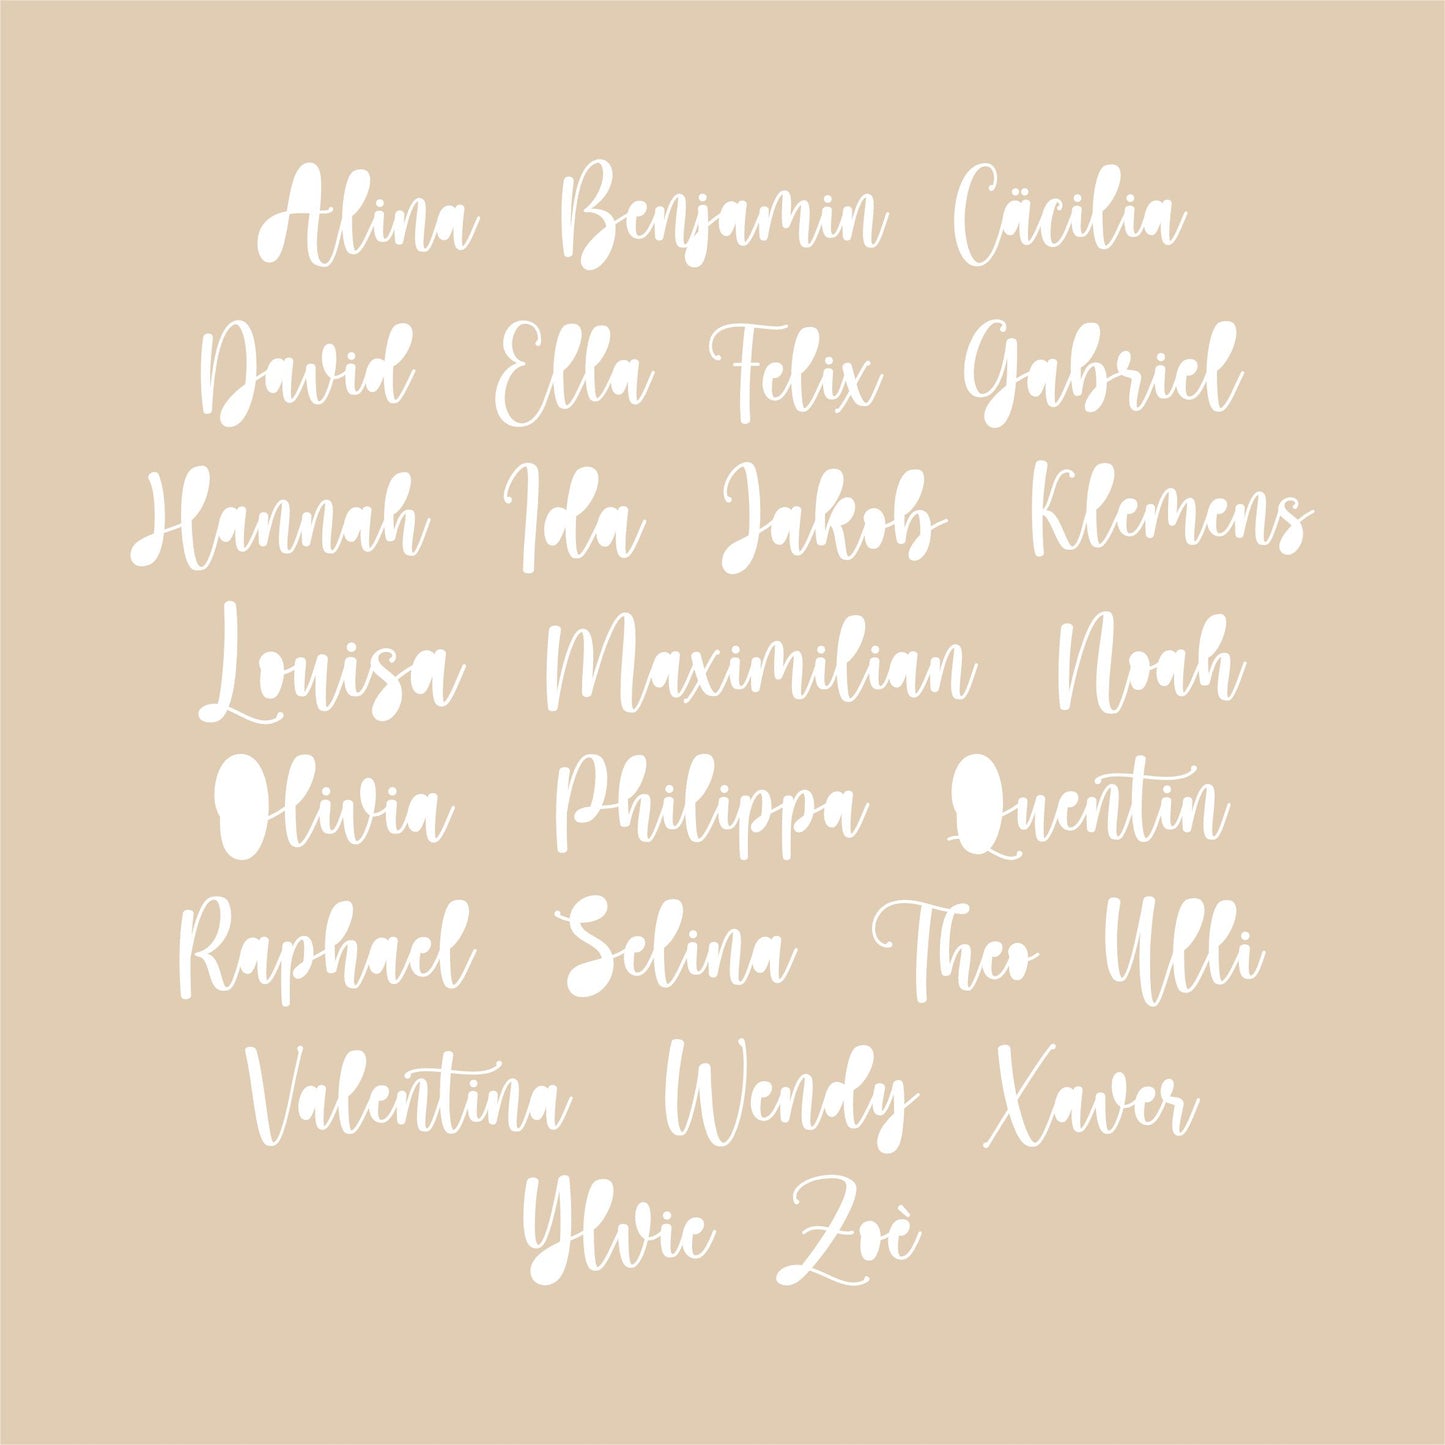 Alina Benjamin Cäcilia
David Ella Felix Gabriel
Hannah Ida Jakob Klemens
Louisa Maximilian Noah
Olivia Philippa Quentin
Raphael Selina Theo Ulli
Valentina Wendy Xaver
Ylvie Zoè